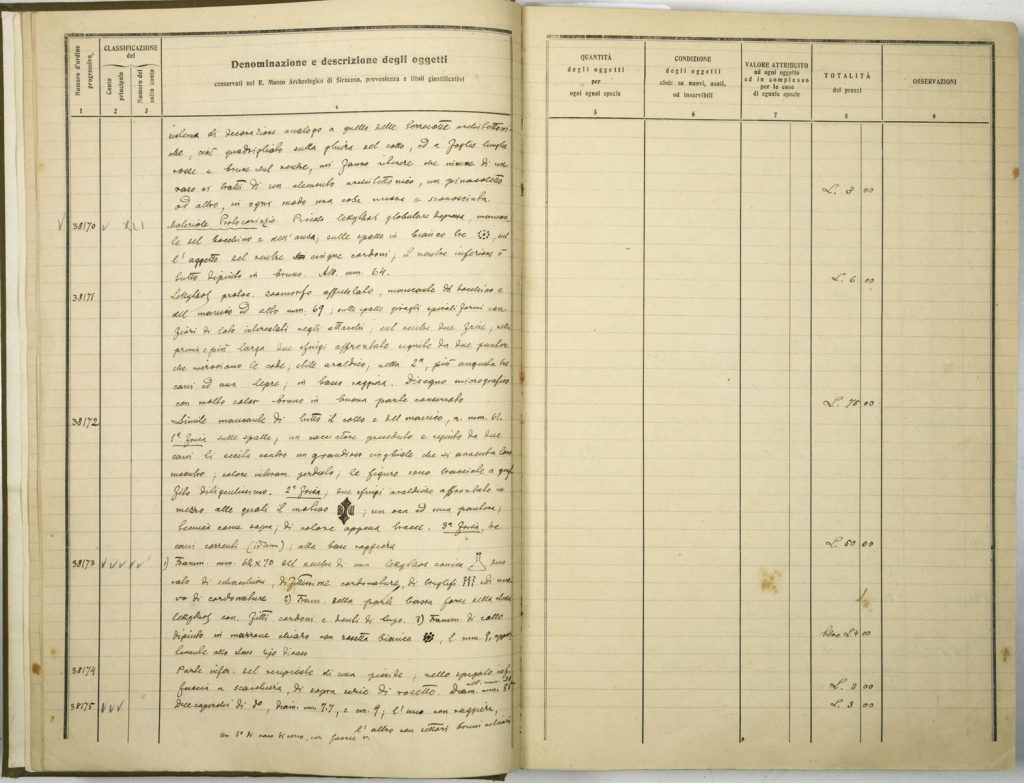 Numero d'ordine progressivo,
CLASSIFICAZIONE
del
Conto principale
Numero del sotto conto
Denominazione e descrizione degli oggetti
conservati nel R. Museo Archeologico di Siracusa, provenienza e titoli giustificativi
1 2 3 4
sistema di decorazione analogo a quello delle terrecotte architettoni-
che, cioè quadrigliato sulla del collo, ed a foglie lunghe
rosse e brune sul ventre, mi fanno ritenere che invece di un
vaso si tratti di un elemento architettonico, un
od altro, in ogni modo una cosa nuova e sconosciuta.
38170 Materiale Protocorinzio. Piccola lekythos globulare depressa, mancan-
te del bocchino e dell'ansa; sulle spalle in bianco tre , sul
l'aggetto del ventre cinque cordoni; il ventre inferiore è
tutto dipinto in bruno. Alt. mm. 64.
38171 Lekythos protoc. affusolato, mancante del bocchino e
del manico ed alto mm. 69; sulle spalle giragli spiraliformi con
fiori di loto intercalati negli attacchi; sul ventre due frise; nella
prima e più larga due sfingi affrontate seguite da due pantere
che incrociano le code; stile araldico; nella 2ª, più angusta tre
cani ed una lepre; in basso raggiera. Disegno micrografico
con molto color bruno in buona parte conservato
38172 Simile mancante di tutto il collo e del manico, a. mm. 61.
1ª fascia sulle spalle, un cacciatore preceduto e seguito da due
cani li eccita contro un grandioso cinghiale che si avventa loro
incontro; colore perduto; le figure sono tracciate a graf
fito diligentissimo. 2ª fascia, due sfingi araldiche affrontate in
mezzo alle quali il motivo ; un oca ed una pantera,
tecnica come sopra; di colore appena tracce. 3ª fascia, tre
cani correnti ; alla base raggiera
38173 1) Framm. mm. 62 x 70 del ventre di una lekythos conica
di scacchiere, di fittissime cordonature, di treglifi e di nuo
vo di cordonature 2) Fram. della parte bassa forse della stessa
lekythos con fitti cordoni e denti di lupo. 3) Framm. di collo
dipinto in marrone chiaro con rosetta bianca , l. mm. 9,
allo stesso di vaso
38174 Parte infer. del recipiente di una pisside; nello spigolo inf.
fascia a scacchiera, di sopra serie di rosette. Diam. mm. 85
38175 Due coperchi di do, diam. cm. 7.7, e cm. 9; l'uno con raggiera,
l'altro con settori bruni
con 3º di vaso diverso, con fascie
QUANTITÀ
degli oggetti
per
ogni egual specie
CONDIZIONE
degli oggetti
cioè: se nuovi, usati,
od inservibili
VALORE ATTRIBUITO
ad ogni oggetto
ed in complesso
per le cose
di eguale specie
TOTALITÀ
dei prezzi
OSSERVAZIONI
5 6 7 8 9
L. 8 00
L. 6 00
L. 75 00
L. 50 00
L. 4 00
L. 3 00
L. 3 00